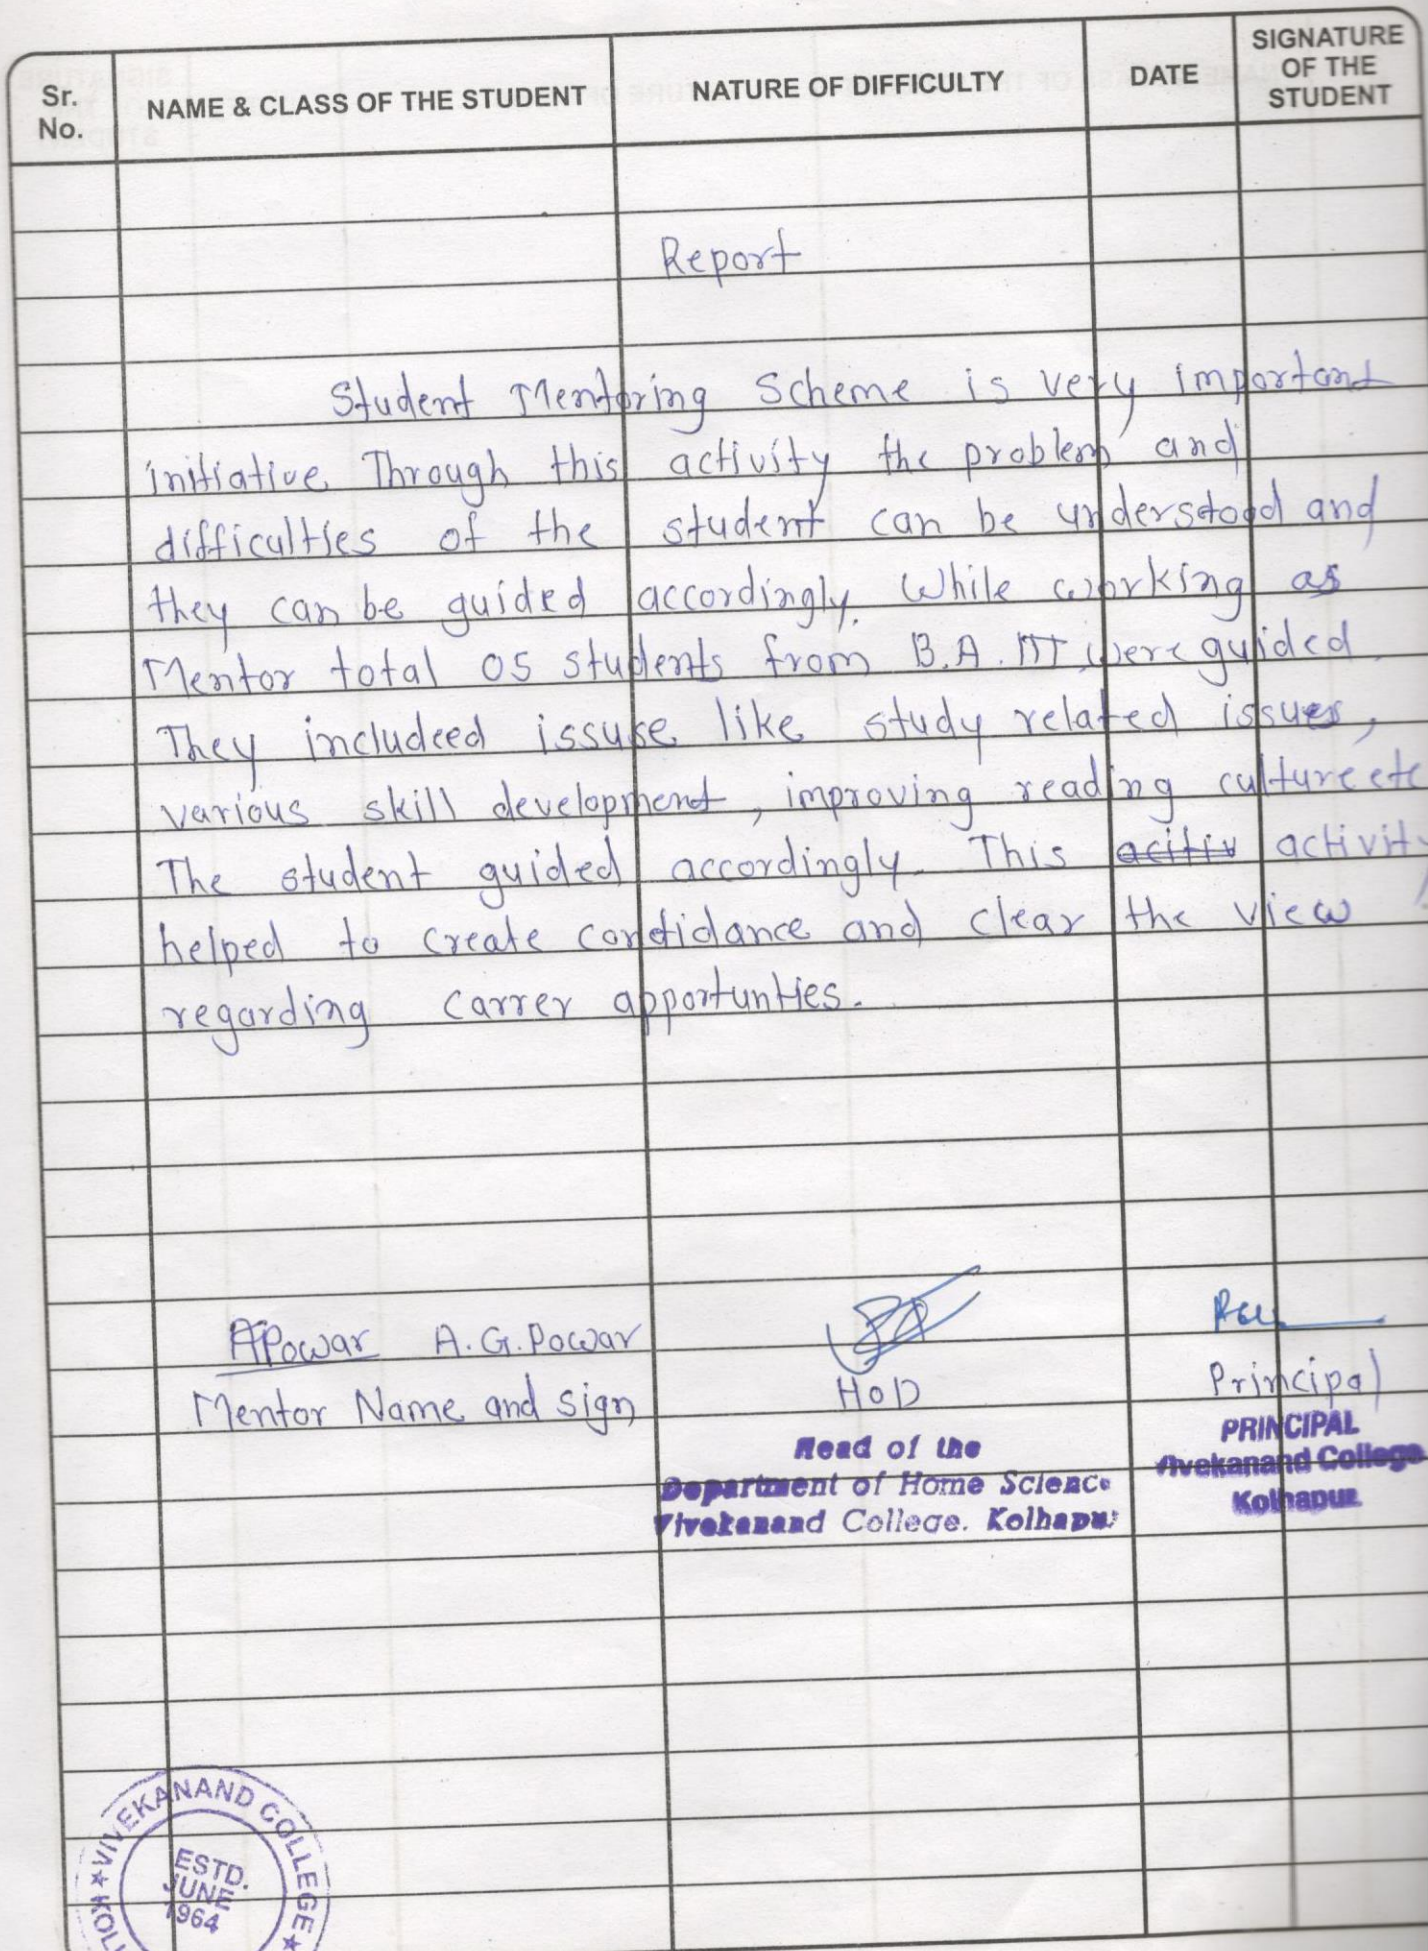 Sr. No.
NAME & CLASS OF THE STUDENT
NATURE OF DIFFICULTY
DATE
SIGNATURE OF THE STUDENT
Report
Student Mentoring Scheme is very important
initiative Through this activity the problem and
difficulties of the student can be understood and
they can be guided accordingly. While working as
Mentor total 05 students from B.A. III were guided.
They includeed issuse like study related issues,
various skill development, improving reading culture etc
The student guided accordingly. This acitiv activity
helped to create confidance and clear the view
regarding carrer apportunties.
APowar A.G.Powar
Mentor Name and sign
HOD
Head of the
Department of Home Science
Vivekanand College. Kolhapur
Principal
PRINCIPAL
Vivekanand College
Kolhapur
VIVEKANAND COLLEGE
ESTD.
JUNE
1964